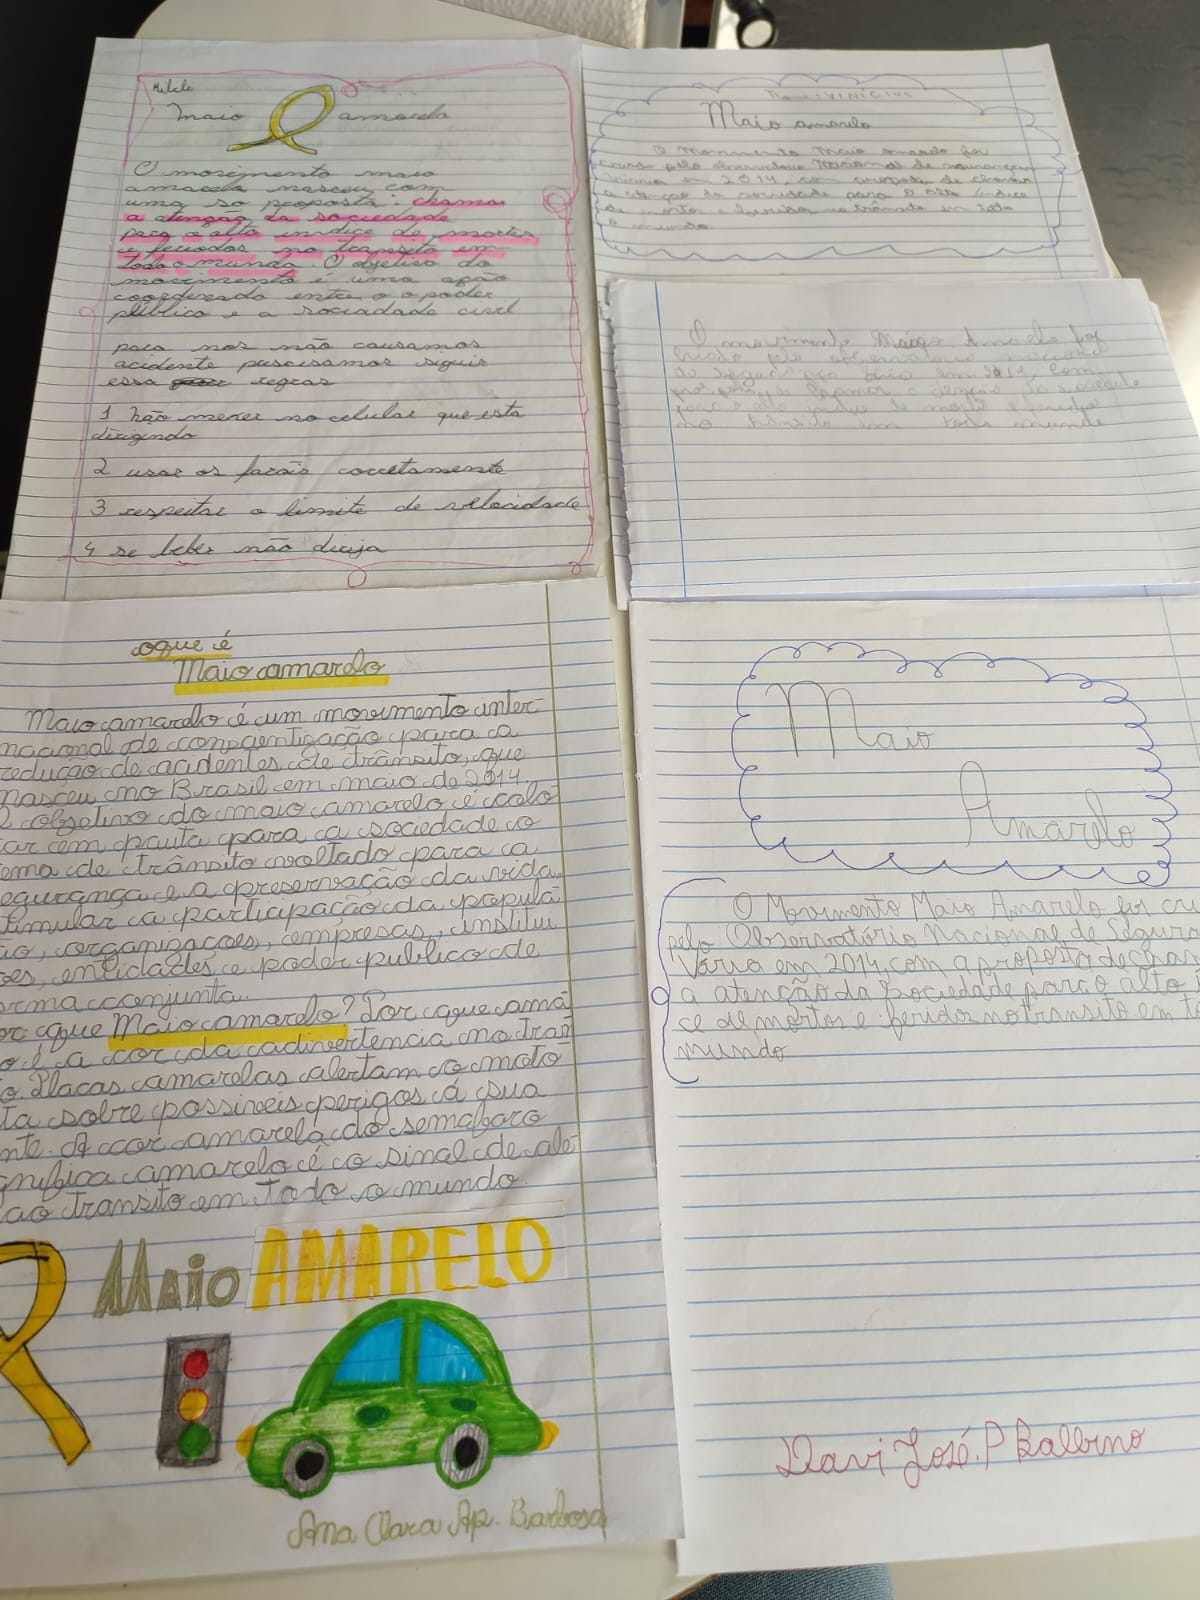 Maio amarelo
O movimento maio
amarela nasceu com
uma so proposta: chamar
a atenção da sociedade
para o alto inidice de mortes
e feriodos no transito em
todo o mundo. O objetivo do
movimento é uma ação
coordenado entre o o poder
público e a sociadade civil
para nos não causamos
acidente presisamos siguir
essa regras
1 não mexer no celular que esta
dirigindo
2 usar os farois corretamente
3 respeitar o limite de velocidade
4 se beber não dirija
Maio amarelo
O Movimento Maio Amarelo foi
criado pelo observatório Nacional de
em 2014, com proposta de
a atenção da sociedade para o alto índice
de mortos e feridos no trânsito em todo
o mundo
O movimento Amarelo foi
criado pelo observatorio
em 2014, com
no trânsito em todo mundo
oque é
Maio amarelo
Maio amarelo é um movimento inter-
nacional de conpcientização para a
redução de acidentes de trânsito, que
nasceu no Brasil em maio de 2014.
O objetivo do maio amarelo é colo
car em pauta para a sociedade o
tema de trânsito voltado para a
egurança e a preservação da vida.
timular a participação da populá
ão, organizaçoes, empresas, institui
ões, entidades e poder publico de
orma conjunta.
or que Maio amarelo? Por que amá
o é a cor da cadivertencia no tran
o. Placas amarelas alertam o moto
ta sobre possiveis perigos á sua
nte. A cor amarela do semafaro
gnifica amarelo é o sinal de ale
ao transito em todo o mundo.
Maio AMARELO
Ana Clara Ap. Barbosa
Maio
Amarelo
O Movimento Maio Amarelo foi cri
pelo Observatório Nacional de Segura
Viária em 2014, com a proposta de cham
a atenção da Sociedade para o alto í
ce de mortos e feridos no transito em to
mundo
Davi José. P Balbino